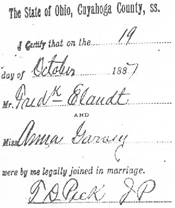 The State of Ohio, Cuyahoga County, ss.
I Certify that on the 19
day of October 1887
Mr. Fredk Elaudt
AND
Miss Anna
were by me legally joined in marriage.
T D Peck J P